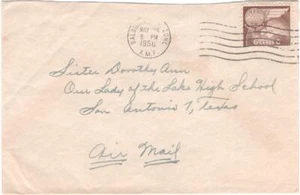 MAY
8 PM
1950
Sister Dorothy Ann
Our Lady of the Lake High School
San Antonio 7, Texas
Air Mail